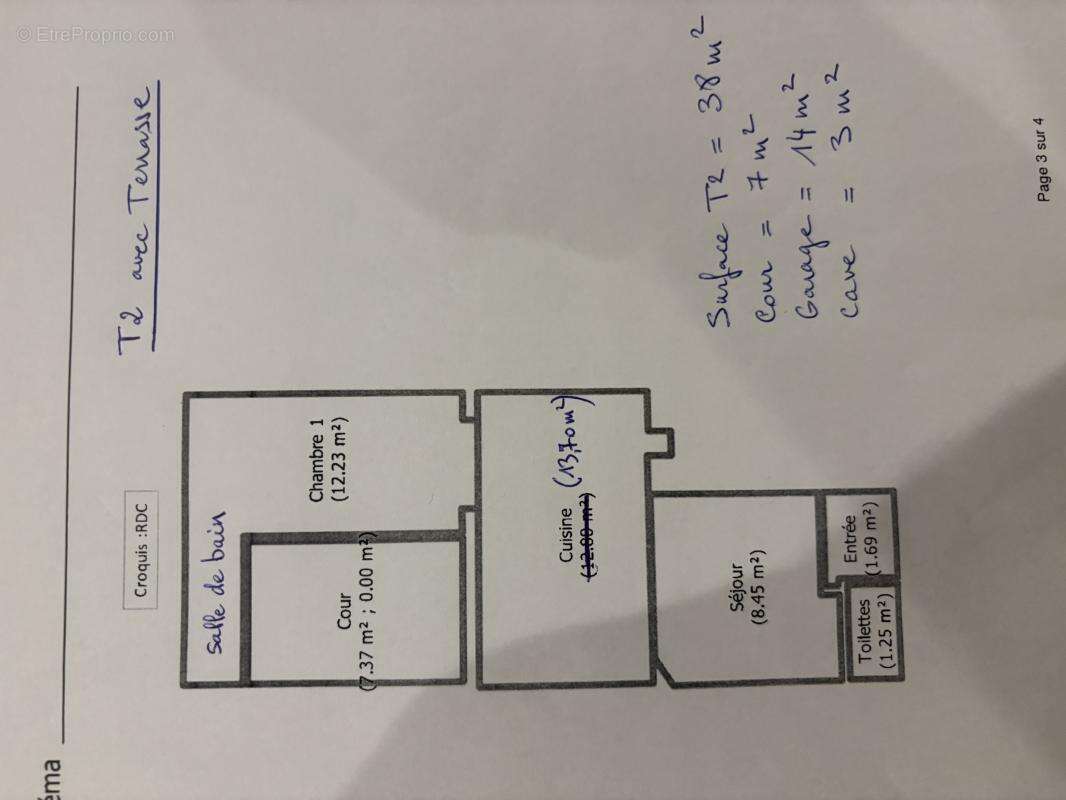 © EtreProprio.com
éma
T2 avec Terrasse
Croquis :RDC
salle de bain
Chambre 1
(12.23 m²)
Cour
(7.37 m² ; 0.00 m²)
Cuisine (13,70 m²)
(12.00 m²)
Séjour
(8.45 m²)
Toilettes
(1.25 m²)
Entrée
(1.69 m²)
Surface T2 = 38 m²
Cour = 7 m²
Garage = 14 m²
Cave = 3 m²
Page 3 sur 4